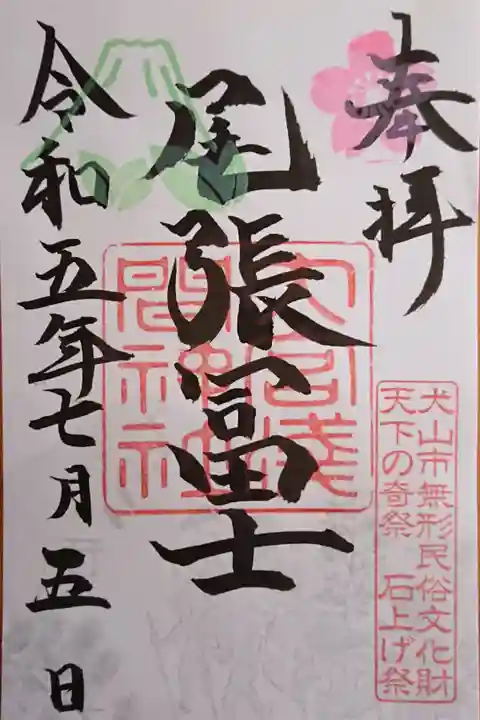 奉拝
犬山市無形民俗文化財
天下の奇祭 石上げ祭
尾張冨士
大宮浅
間神社
令和五年七月五日